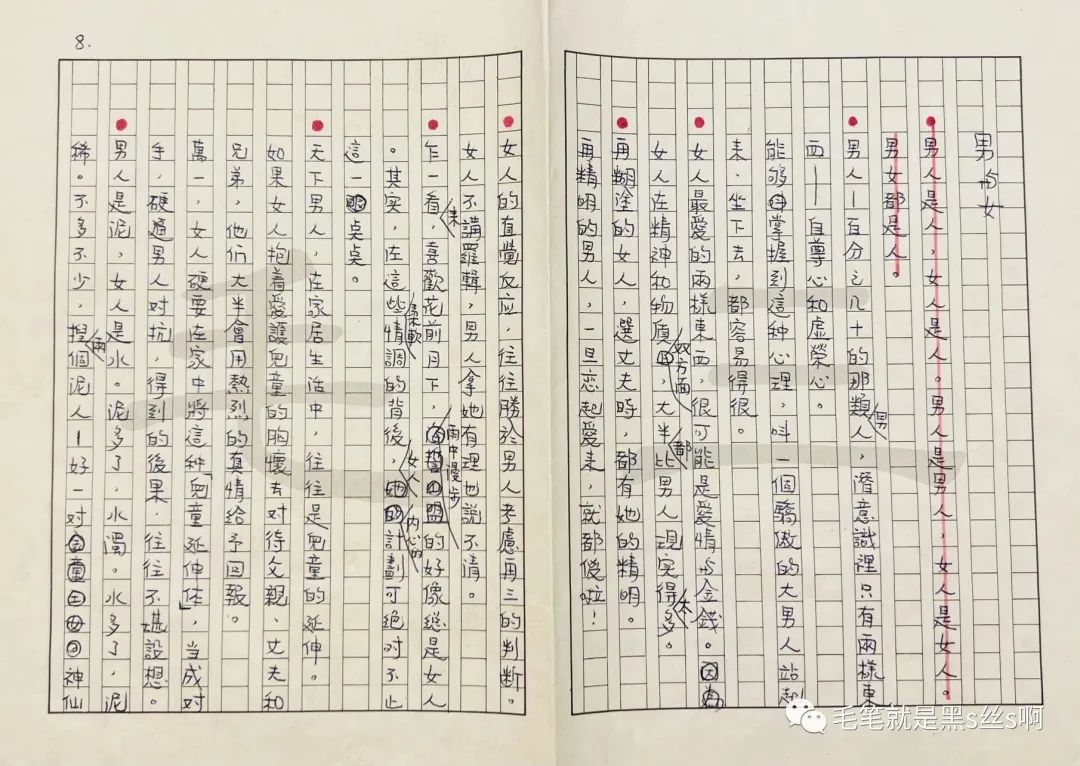 男与女
男人是人，女人是人。男人是男人，女人是女人。
男女都是人。
男人——百分之九十的那類男人，潛意識裡只有兩樣東
西——自尊心和虛榮心。
能夠掌握到這种心理，叫一個驕傲的大男人站起
来、坐下去，都容易得很。
女人最愛的兩樣東西，很可能是愛情与金錢。
女人在精神和物質双方面，大半都比男人現实得多。
再糊塗的女人，選丈夫時，都有她的精明。
再精明的男人，一旦恋起愛来，就都傻啦！
8.
女人的直覺反应，往往勝於男人考慮再三的判断。
女人不講羅輯，男人拿她有理也說不清。
乍一看来，喜歡花前月下，雨中漫步的好像總是女人
。其实，在這些柔軟情調的背後，女人内心的計劃可絕对不止
這一桌桌。
天下男人，在家居生活中，往往是兒童的延伸。
如果女人抱着愛護兒童的胸懷去对待父親、丈夫和
兄弟，他们大半會用熱烈的真情給予回報。
萬一，女人硬要在家中將這种「兒童延伸体」，当成对
手，硬逼男人对抗，得到的後果，往往不堪設想。
男人是泥，女人是水。泥多了，水濁。水多了，泥
稀。不多不少，捏兩個泥人—好一对神仙
毛笔就是黑s丝s啊